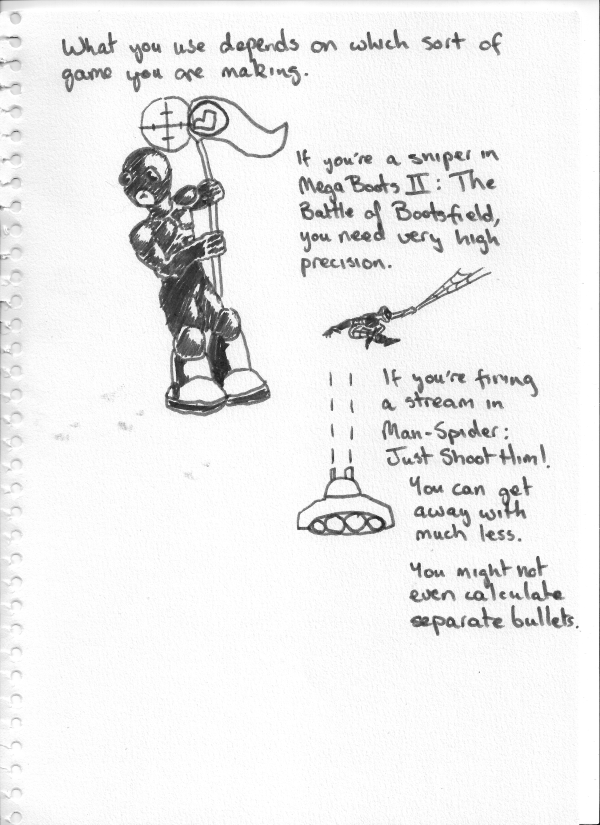 What you use depends on which sort of
game you are making.
If you're a sniper in
Mega Boots II: The
Battle of Bootsfield,
you need very high
precision.
If you're firing
a stream in
Man-Spider:
Just Shoot Him!
You can get
away with
much less.
You might not
even calculate
separate bullets.